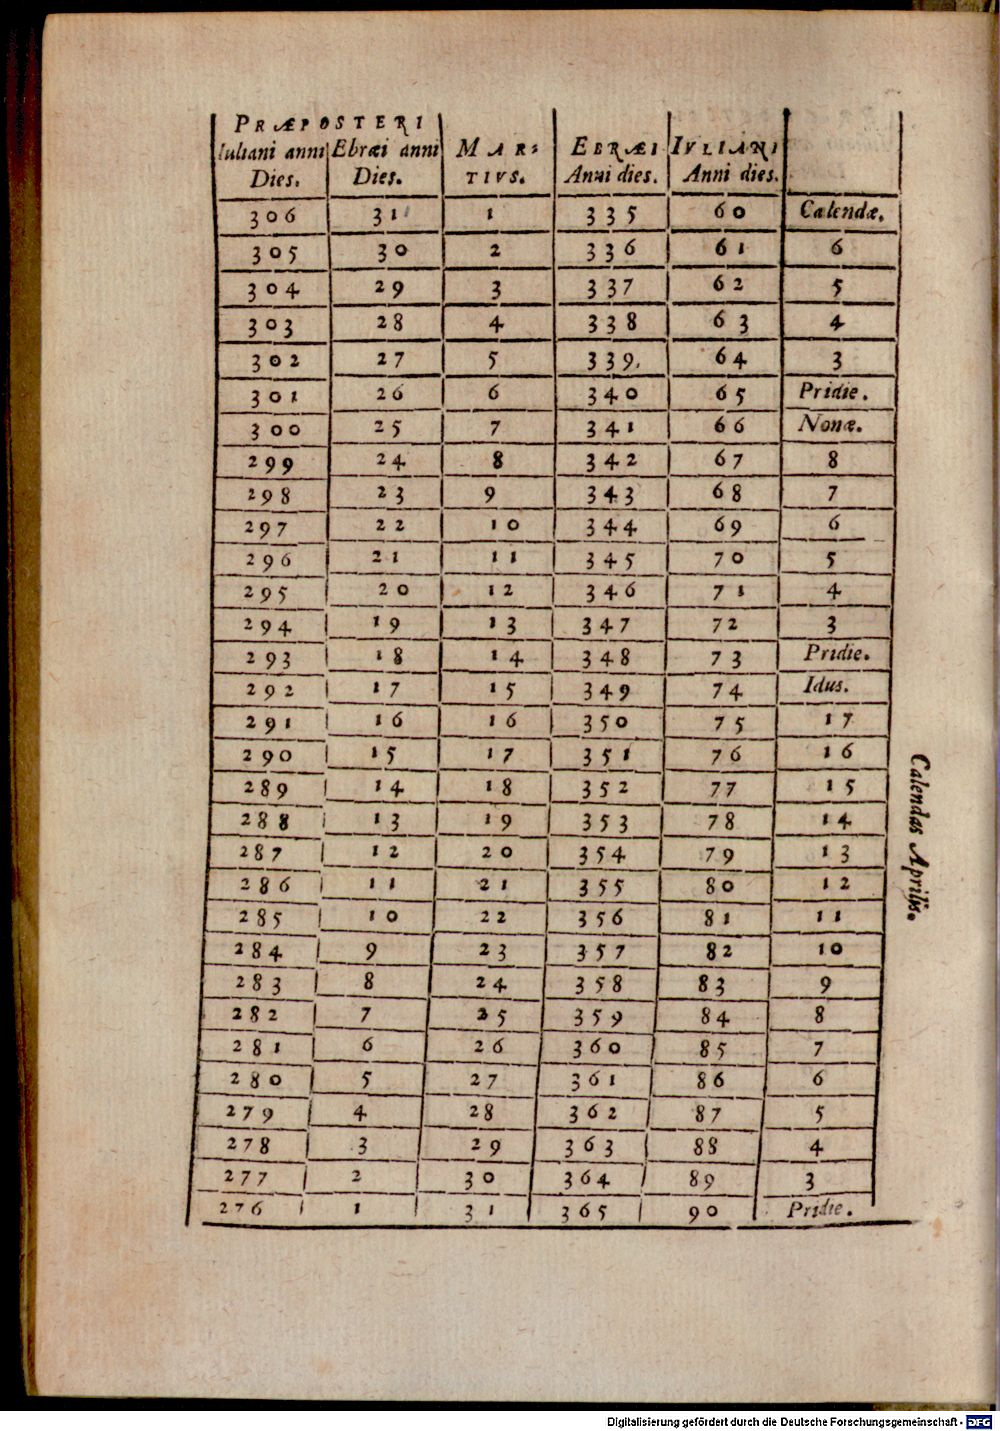 PRÆPOSTERI
Iuliani anni Ebræi anni MAR- EBRÆI IVLIANI
Dies. Dies. TIVS. Anni dies. Anni dies.
306 31 1 335 60 Calendæ.
305 30 2 336 61 6
304 29 3 337 62 5
303 28 4 338 63 4
302 27 5 339. 64 3
301 26 6 340 65 Pridie.
300 25 7 341 66 Nonæ.
299 24 8 342 67 8
298 23 9 343 68 7
297 22 10 344 69 6
296 21 11 345 70 5
295 20 12 346 71 4
294 19 13 347 72 3
293 18 14 348 73 Pridie.
292 17 15 349 74 Idus.
291 16 16 350 75 17
290 15 17 351 76 16
289 14 18 352 77 15
288 13 19 353 78 14
287 12 20 354 79 13
286 11 21 355 80 12
285 10 22 356 81 11
284 9 23 357 82 10
283 8 24 358 83 9
282 7 25 359 84 8
281 6 26 360 85 7
280 5 27 361 86 6
279 4 28 362 87 5
278 3 29 363 88 4
277 2 30 364 89 3
276 1 31 365 90 Pridie.
Calendas Aprilis.
Digitalisierung gefördert durch die Deutsche Forschungsgemeinschaft - DFG